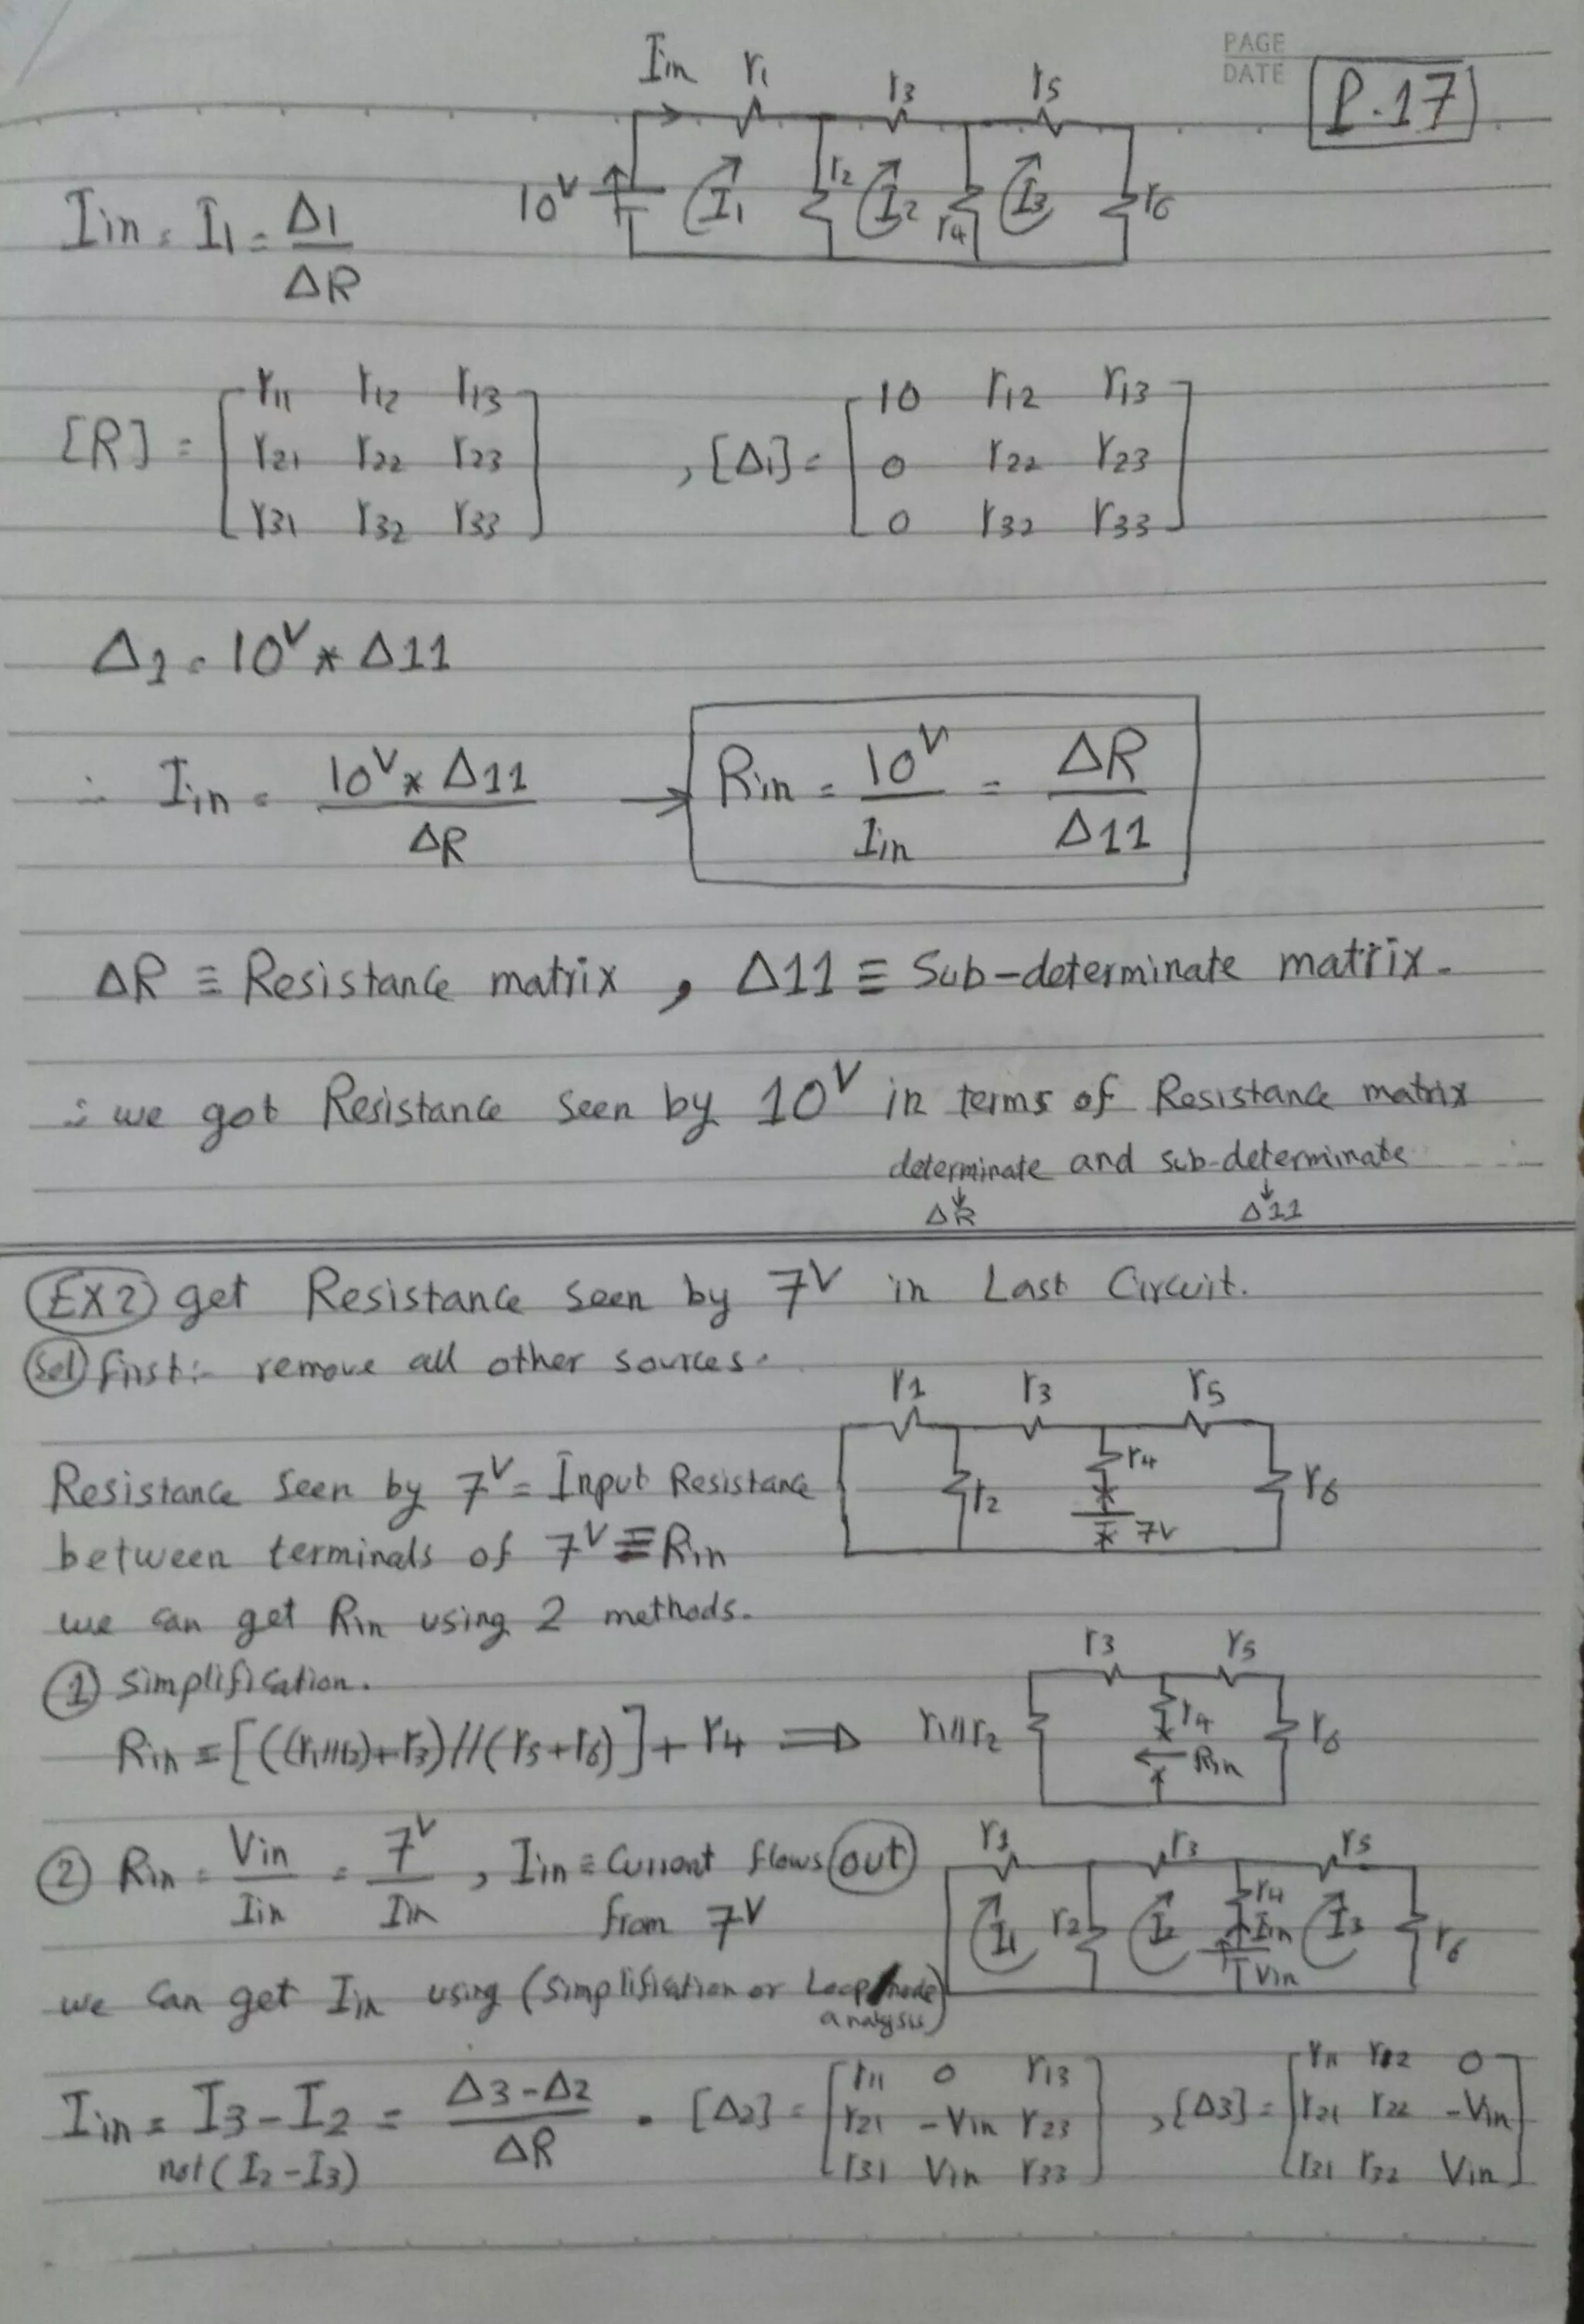 PAGE
DATE
P.17
Iin r1 r3 r5
10V I1 r2 I2 r4 I3 r6
Iin = I1 = Δ1 / ΔR
[R] = [ r11 r12 r13
r21 r22 r23
r31 r32 r33 ]
, [Δ1] = [ 10 r12 r13
0 r22 r23
0 r32 r33 ]
Δ1 = 10V * Δ11
∴ Iin = 10V * Δ11 / ΔR → Rin = 10V / Iin = ΔR / Δ11
ΔR ≡ Resistance matrix , Δ11 ≡ Sub-determinate matrix.
∴ we got Resistance seen by 10V in terms of Resistance matrix
determinate and sub-determinate
↓ ΔR ↓ Δ11
EX2 get Resistance seen by 7V in Last Circuit.
Sol first:- remove all other sources.
r1 r3 r5
r2 r4 7V r6
Resistance seen by 7V = Input Resistance
between terminals of 7V ≡ Rin
we can get Rin using 2 methods.
① simplification.
Rin = [((r1//r2)+r3)//(r5+r6)] + r4 ⇒
r3 r5
r1//r2 r4 Rin r6
② Rin = Vin / Iin = 7V / Iin , Iin ≡ Current flows out
from 7V
r1 r3 r5
I1 r2 I2 r4 Iin Vin I3 r6
we can get Iin using (simplification or Loop/node
analysis)
Iin = I3 - I2 = Δ3 - Δ2 / ΔR .
not (I2 - I3)
[Δ2] = [ r11 0 r13
r21 -Vin r23
r31 Vin r33 ]
, [Δ3] = [ r11 r12 0
r21 r22 -Vin
r31 r32 Vin ]